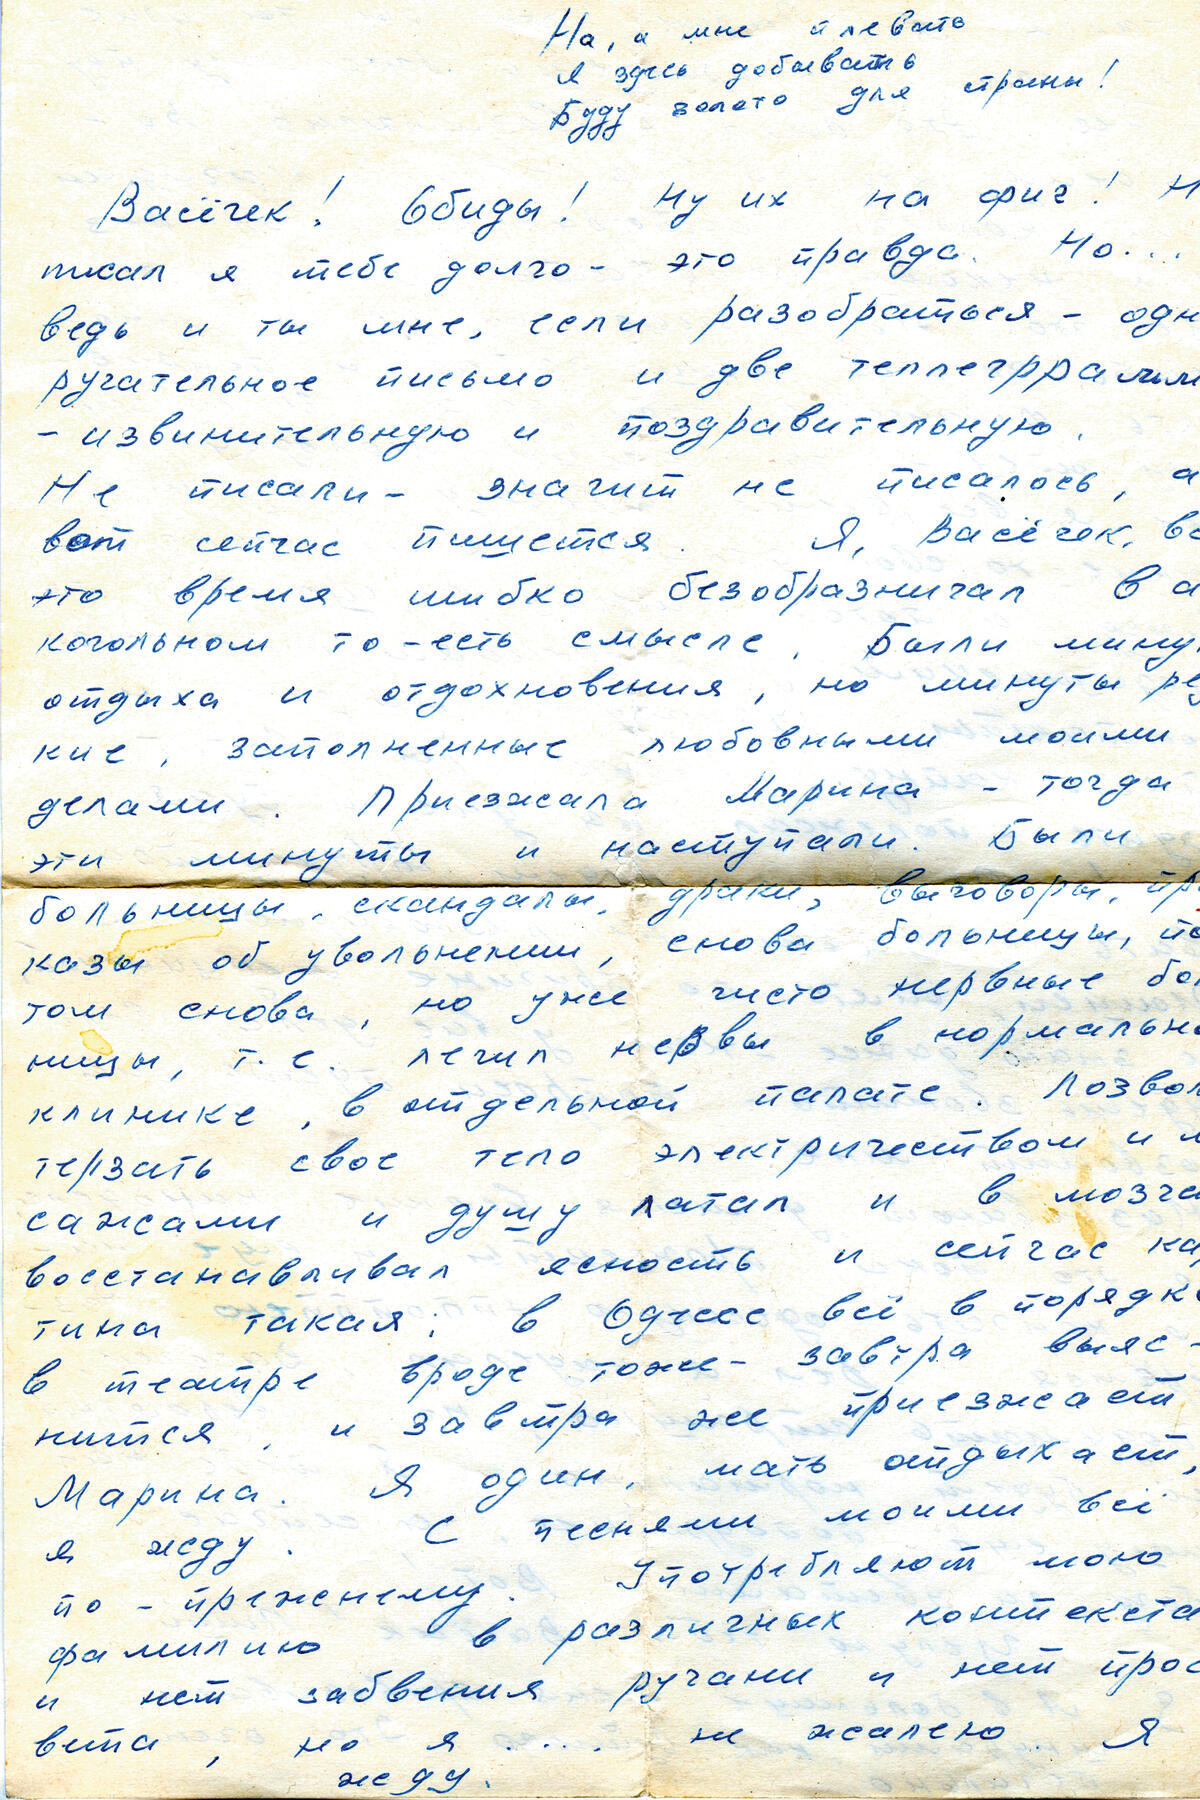 На, а мне плевать
Я здесь добывать
Буду золото для страны!
Васёчек! Обиды! Ну их на фиг! Н
писал я тебе долго - это правда. Но....
ведь и ты мне, если разобраться - одн
ручательное письмо и две теллегррамм
- извинительную и поздравительную.
Не писали - значит не писалось, а
вот сейчас пишется. Я, Васёчек, вс
это время шибко безобразничал в а
когольном то-есть смысле. Были мину
отдыха и отдохновения, но минуты ред
кие, заполненные любовными моими
делами. Приезжала Марина - тогда
эти минуты и наступали. Были
больницы, скандалы, драки, выговоры, при
казы об увольнении, снова больницы, по
том снова, но уже чисто нервные бол
ницы, т.е. лечил нервы в нормально
клинике, в отдельной палате. Позвол
терзать свое тело электричеством и м
сажами и душу латал и в мозга
восстанавливал ясность и сейчас ка
тина такая: в Одессе всё в порядке
в театре вроде тоже - завтра выяс-
нится, и завтра же приезжает
Марина. Я один, мать отдыхает,
я жду. С песнями моими всё
по-прежнему. Употребляют мою
фамилию в различных контекста
и нет забвения ругани и нет прос
вета, но я .... не жалею. Я
жду.